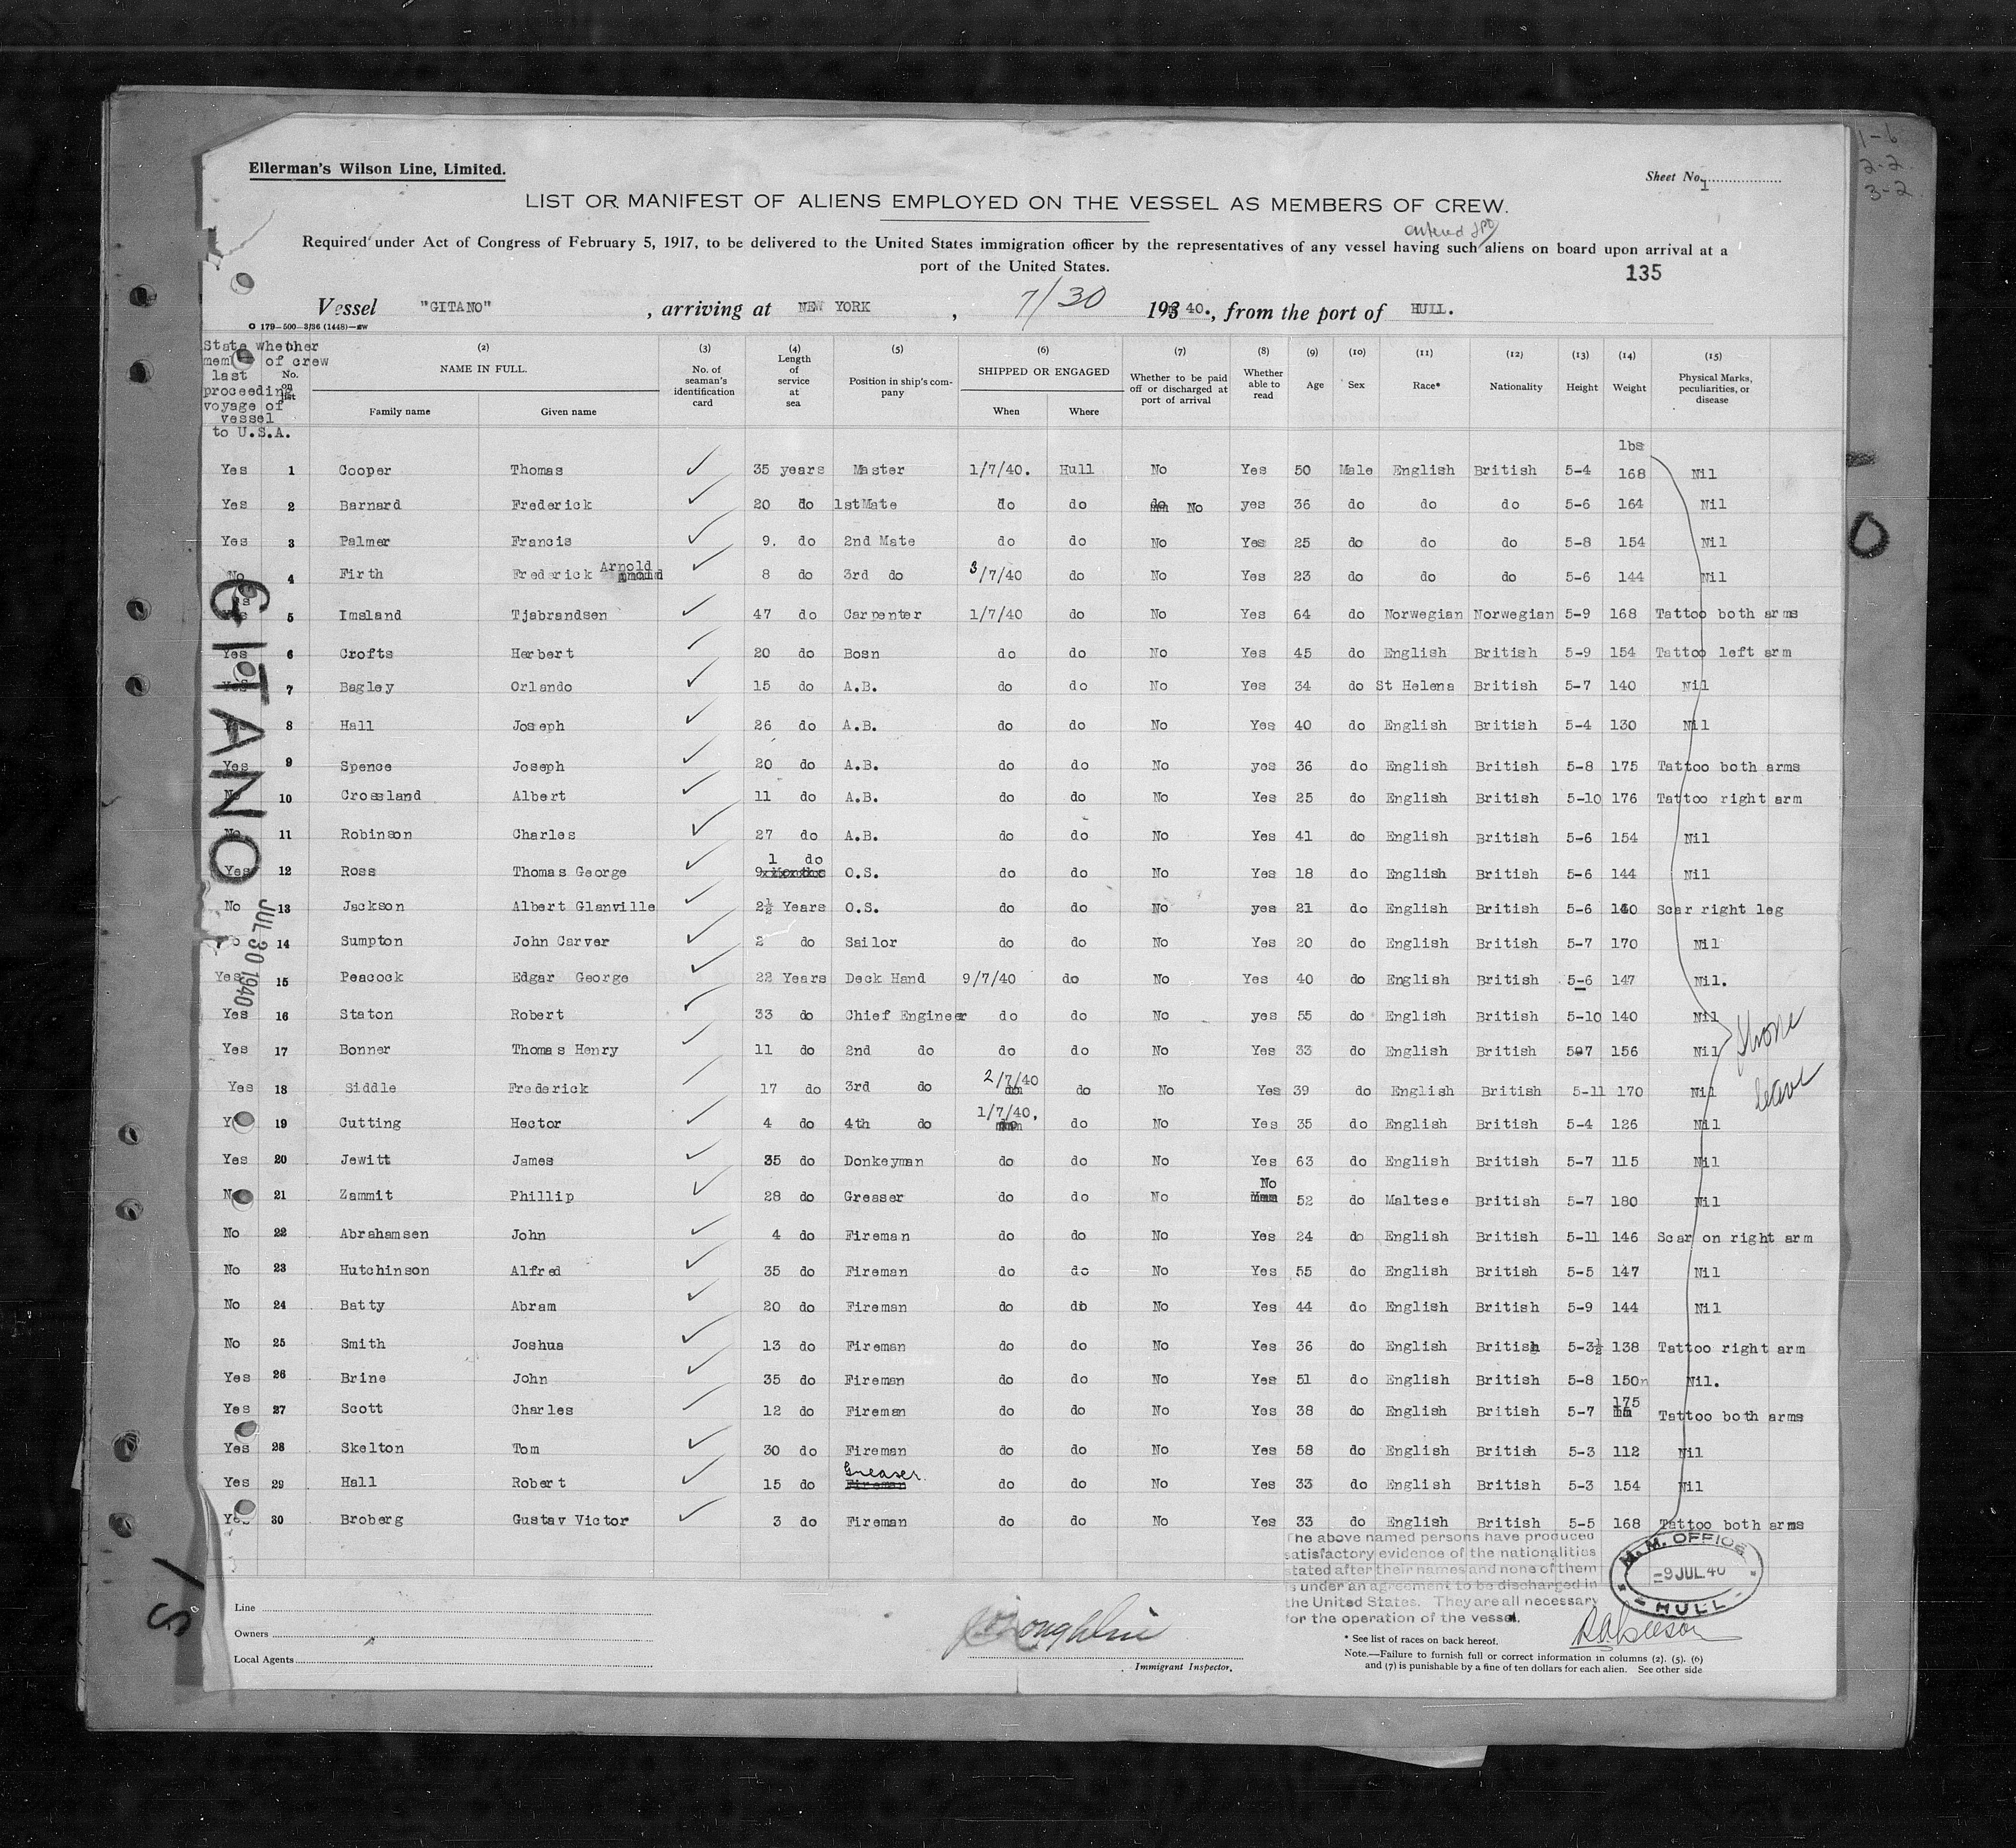 1-6
2-2.
3-2.
Ellerman's Wilson Line, Limited.
Sheet No. 1
LIST OR MANIFEST OF ALIENS EMPLOYED ON THE VESSEL AS MEMBERS OF CREW.
entered
Required under Act of Congress of February 5, 1917, to be delivered to the United States immigration officer by the representatives of any vessel having such aliens on board upon arrival at a
port of the United States.
135
Vessel "GITANO", arriving at NEW YORK, 7/30 193 40., from the port of HULL.
O 179-500-3/36 (1448)-EW
State whether member of crew last proceeding voyage of vessel to U.S.A.
(1) No. on list
(2) NAME IN FULL. Family name Given name
(3) No. of seaman's identification card
(4) Length of service at sea
(5) Position in ship's company
(6) SHIPPED OR ENGAGED When Where
(7) Whether to be paid off or discharged at port of arrival
(8) Whether able to read
(9) Age
(10) Sex
(11) Race*
(12) Nationality
(13) Height
(14) Weight
(15) Physical Marks, peculiarities, or disease
lbs
Yes 1 Cooper Thomas ✓ 35 years Master 1/7/40. Hull No Yes 50 Male English British 5-4 168 Nil
Yes 2 Barnard Frederick ✓ 20 do 1stMate do do do No yes 36 do do do 5-6 164 Nil
Yes 3 Palmer Francis ✓ 9. do 2nd Mate do do No Yes 25 do do do 5-8 154 Nil
No 4 Firth Frederick Arnold ✓ 8 do 3rd do 3/7/40 do No Yes 23 do do do 5-6 144 Nil
Yes 5 Imsland Tjabrandsen ✓ 47 do Carpenter 1/7/40 do No Yes 64 do Norwegian Norwegian 5-9 168 Tattoo both arms
Yes 6 Crofts Herbert ✓ 20 do Bosn do do No Yes 45 do English British 5-9 154 Tattoo left arm
Yes 7 Bagley Orlando ✓ 15 do A.B. do do No Yes 34 do St Helena British 5-7 140 Nil
8 Hall Joseph ✓ 26 do A.B. do do No Yes 40 do English British 5-4 130 Nil
Yes 9 Spence Joseph ✓ 20 do A.B. do do No yes 36 do English British 5-8 175 Tattoo both arms
No 10 Crossland Albert ✓ 11 do A.B. do do No Yes 25 do English British 5-10 176 Tattoo right arm
No 11 Robinson Charles ✓ 27 do A.B. do do No Yes 41 do English British 5-6 154 Nil
Yes 12 Ross Thomas George ✓ 9 Months 1 do O.S. do do No Yes 18 do English British 5-6 144 Nil
No 13 Jackson Albert Glanville ✓ 2½ Years O.S. do do No yes 21 do English British 5-6 140 Scar right leg
No 14 Sumpton John Carver ✓ 2 do Sailor do do No Yes 20 do English British 5-7 170 Nil
Yes 15 Peacock Edgar George ✓ 22 Years Deck Hand 9/7/40 do No Yes 40 do English British 5-6 147 Nil.
Yes 16 Staton Robert ✓ 33 do Chief Engineer do do No yes 55 do English British 5-10 140 Nil
Yes 17 Bonner Thomas Henry ✓ 11 do 2nd do do do No Yes 33 do English British 5-7 156 Nil
Yes 18 Siddle Frederick ✓ 17 do 3rd do 2/7/40 do No Yes 39 do English British 5-11 170 Nil
Yes 19 Cutting Hector ✓ 4 do 4th do 1/7/40. do No Yes 35 do English British 5-4 126 Nil
Yes 20 Jewitt James ✓ 35 do Donkeyman do do No Yes 63 do English British 5-7 115 Nil
No 21 Zammit Phillip ✓ 28 do Greaser do do No No 52 do Maltese British 5-7 180 Nil
No 22 Abrahamsen John ✓ 4 do Fireman do do No Yes 24 do English British 5-11 146 Scar on right arm
No 23 Hutchinson Alfred ✓ 35 do Fireman do do No Yes 55 do English British 5-5 147 Nil
No 24 Batty Abram ✓ 20 do Fireman do do No Yes 44 do English British 5-9 144 Nil
No 25 Smith Joshua ✓ 13 do Fireman do do No Yes 36 do English British 5-3½ 138 Tattoo right arm
Yes 26 Brine John ✓ 35 do Fireman do do No Yes 51 do English British 5-8 150 Nil.
Yes 27 Scott Charles ✓ 12 do Fireman do do No Yes 38 do English British 5-7 175 Tattoo both arms
Yes 28 Skelton Tom ✓ 30 do Fireman do do No Yes 58 do English British 5-3 112 Nil
Yes 29 Hall Robert ✓ 15 do Fireman Greaser. do do No Yes 33 do English British 5-3 154 Nil
Yes 30 Broberg Gustav Victor ✓ 3 do Fireman do do No Yes 33 do English British 5-5 168 Tattoo both arms
GITANO
JUL 30 1940
leave
The above named persons have produced
satisfactory evidence of the nationalities
stated after their names and none of them
is under an agreement to be discharged in
the United States. They are all necessary
for the operation of the vessel.
M.M. OFFICE
-9 JUL 40
HULL
Line
Owners
Local Agents
Immigrant Inspector.
* See list of races on back hereof.
Note.—Failure to furnish full or correct information in columns (2). (5). (6)
and (7) is punishable by a fine of ten dollars for each alien. See other side